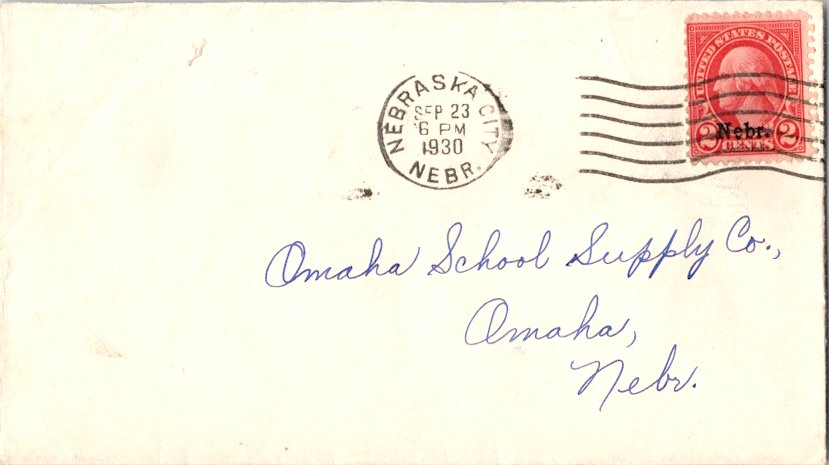 NEBRASKA CITY
SEP 23
6 PM
1930
NEBR.
UNITED STATES POSTAGE
2 Nebr. 2
CENTS
Omaha School Supply Co.,
Omaha,
Nebr.